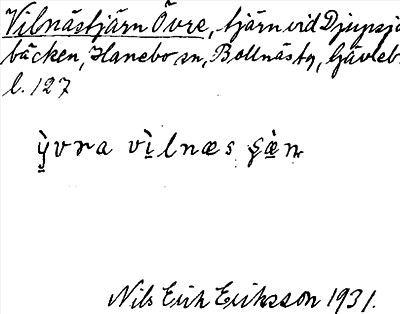 Vilnästjärn Övre, tjärn vid Djupsjö
bäcken, Hanebo sn, Bollnäs tg, Gävleb.
l. 127
ỳvra vìlnæs ʂæ̀n
Nils Erik Eriksson 1931.